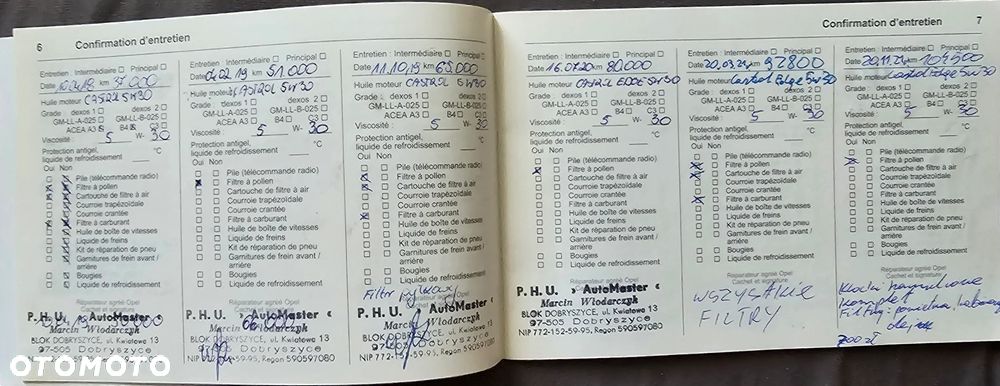 6 Confirmation d'entretien
Entretien : Intermédiaire Principal
Date km 37000
Huile moteur CASTROL 5W30
Grade : dexos 1 dexos 2
GM-LL-A-025 GM-LL-B-025
ACEA A3 B4 C3
Viscosité : 5 W- 30
Protection antigel,
liquide de refroidissement °C
Oui Non
Pile (télécommande radio)
Filtre à pollen
Cartouche de filtre à air
Courroie trapézoïdale
Courroie crantée
Filtre à carburant
Huile de boîte de vitesses
Liquide de freins
Kit de réparation de pneu
Garnitures de frein avant /
arrière
Bougies
Liquide de refroidissement
Réparateur agréé Opel
Cachet et signature
P. H. U. AutoMaster
Marcin Włodarczyk
BLOK DOBRYSZYCE, ul. Kwiatowa 13
97-505 Dobryszyce
NIP 772-152-59-95, Regon 590597080
Entretien : Intermédiaire Principal
Date 04.02.19 km 51.000
Huile moteur CASTROL 5W30
Grade : dexos 1 dexos 2
GM-LL-A-025 GM-LL-B-025
ACEA A3 B4 C3
Viscosité : 5 W- 30
Protection antigel,
liquide de refroidissement °C
Oui Non
Pile (télécommande radio)
Filtre à pollen
Cartouche de filtre à air
Courroie trapézoïdale
Courroie crantée
Filtre à carburant
Huile de boîte de vitesses
Liquide de freins
Kit de réparation de pneu
Garnitures de frein avant /
arrière
Bougies
Liquide de refroidissement
Réparateur agréé Opel
Cachet et signature
P. H. U. AutoMaster
Marcin Włodarczyk
BLOK DOBRYSZYCE, ul. Kwiatowa 13
97-505 Dobryszyce
NIP 772-152-59-95, Regon 590597080
Entretien : Intermédiaire Principal
Date 11.10.19 km 65.000
Huile moteur CASTROL 5W30
Grade : dexos 1 dexos 2
GM-LL-A-025 GM-LL-B-025
ACEA A3 B4 C3
Viscosité : 5 W- 30
Protection antigel,
liquide de refroidissement °C
Oui Non
Pile (télécommande radio)
Filtre à pollen
Cartouche de filtre à air
Courroie trapézoïdale
Courroie crantée
Filtre à carburant
Huile de boîte de vitesses
Liquide de freins
Kit de réparation de pneu
Garnitures de frein avant /
arrière
Bougies
Liquide de refroidissement
Filtr
P. H. U. AutoMaster
Marcin Włodarczyk
BLOK DOBRYSZYCE, ul. Kwiatowa 13
97-505 Dobryszyce
NIP 772-152-59-95, Regon 590597080
Confirmation d'entretien 7
Entretien : Intermédiaire Principal
Date 16.07.20 km 80000
Huile moteur CASTROL EDGE 5W30
Grade : dexos 1 dexos 2
GM-LL-A-025 GM-LL-B-025
ACEA A3 B4 C3
Viscosité : 5 W- 30
Protection antigel,
liquide de refroidissement °C
Oui Non
Pile (télécommande radio)
Filtre à pollen
Cartouche de filtre à air
Courroie trapézoïdale
Courroie crantée
Filtre à carburant
Huile de boîte de vitesses
Liquide de freins
Kit de réparation de pneu
Garnitures de frein avant /
arrière
Bougies
Liquide de refroidissement
Réparateur agréé Opel
Cachet et signature
P. H. U. AutoMaster
Marcin Włodarczyk
BLOK DOBRYSZYCE, ul. Kwiatowa 13
97-505 Dobryszyce
NIP 772-152-59-95, Regon 590597080
Entretien : Intermédiaire Principal
Date 20.03.21 km 92800
Huile moteur Castrol Edge 5W30
Grade : dexos 1 dexos 2
GM-LL-A-025 GM-LL-B-025
ACEA A3 B4 C3
Viscosité : 5 W- 30
Protection antigel,
liquide de refroidissement °C
Oui Non
Pile (télécommande radio)
Filtre à pollen
Cartouche de filtre à air
Courroie trapézoïdale
Courroie crantée
Filtre à carburant
Huile de boîte de vitesses
Liquide de freins
Kit de réparation de pneu
Garnitures de frein avant /
arrière
Bougies
Liquide de refroidissement
Réparateur agréé Opel
Cachet et signature
WSZYSTKIE
FILTRY
Entretien : Intermédiaire Principal
Date 20.11.21 km 104500
Huile moteur Castrol Edge 5W30
Grade : dexos 1 dexos 2
GM-LL-A-025 GM-LL-B-025
ACEA A3 B4 C3
Viscosité : 5 W- 30
Protection antigel,
liquide de refroidissement °C
Oui Non
Pile (télécommande radio)
Filtre à pollen
Cartouche de filtre à air
Courroie trapézoïdale
Courroie crantée
Filtre à carburant
Huile de boîte de vitesses
Liquide de freins
Kit de réparation de pneu
Garnitures de frein avant /
arrière
Bougies
Liquide de refroidissement
Réparateur agréé Opel
Cachet et signature
Klocki hamulcowe
komplet
Filtry: powietrza, kabinowy
olejowy
700 zł
OTOMOTO